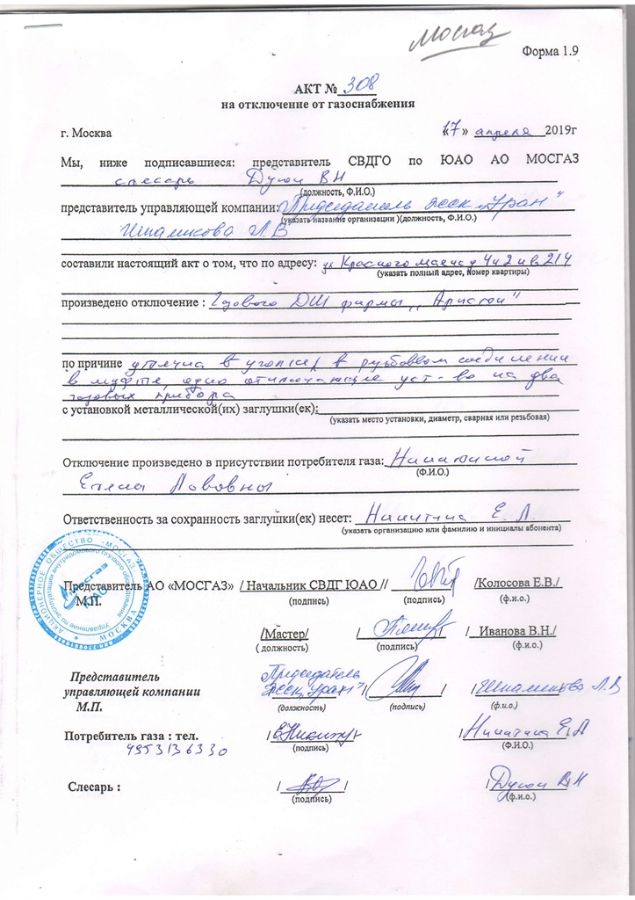 Мосгаз
Форма 1.9
АКТ № 308
на отключение от газоснабжения
г. Москва «17» апреля 2019г
Мы, ниже подписавшиеся: представитель СВДГО по ЮАО АО МОСГАЗ
слесарь ВН
(должность, Ф.И.О.)
представитель управляющей компании: Председатель ЖССК „Уран"
(указать название организации )(должность, Ф.И.О.)
Л.В
составили настоящий акт о том, что по адресу: ул Красного маяка д 4к2 кв 214
(указать полный адрес, Номер квартиры)
произведено отключение : газового фирмы „Аристон"
по причине утечка в в резьбовом соединении
в муфте, одно отключающее уст-во на два
газовых прибора
с установкой металлической(их) заглушки(ек):
(указать место установки, диаметр, сварная или резьбовая)
Отключение произведено в присутствии потребителя газа: Никитиной
(Ф.И.О.)
Елены Львовны
Ответственность за сохранность заглушки(ек) несет: Никитина Е. Л.
(указать организацию или фамилию и инициалы абонента)
АКЦИОНЕРНОЕ ОБЩЕСТВО «МОСГАЗ»
МОСКВА
Представитель АО «МОСГАЗ» / Начальник СВДГ ЮАО // /Колосова Е.В./
М.П. (подпись) (подпись) (ф.и.о.)
/Мастер/ / / Иванова В.Н./
( должность) (подпись) (ф.и.о.)
Представитель Председатель
управляющей компании ЖССК „Уран" / / / Л.В
М.П. (должность) (подпись) (ф.и.о.)
Потребитель газа : тел. / / / Никитина Е.Л
4953136330 (подпись) (Ф.И.О.)
Слесарь : / / / ВН
(подпись) (ф.и.о.)